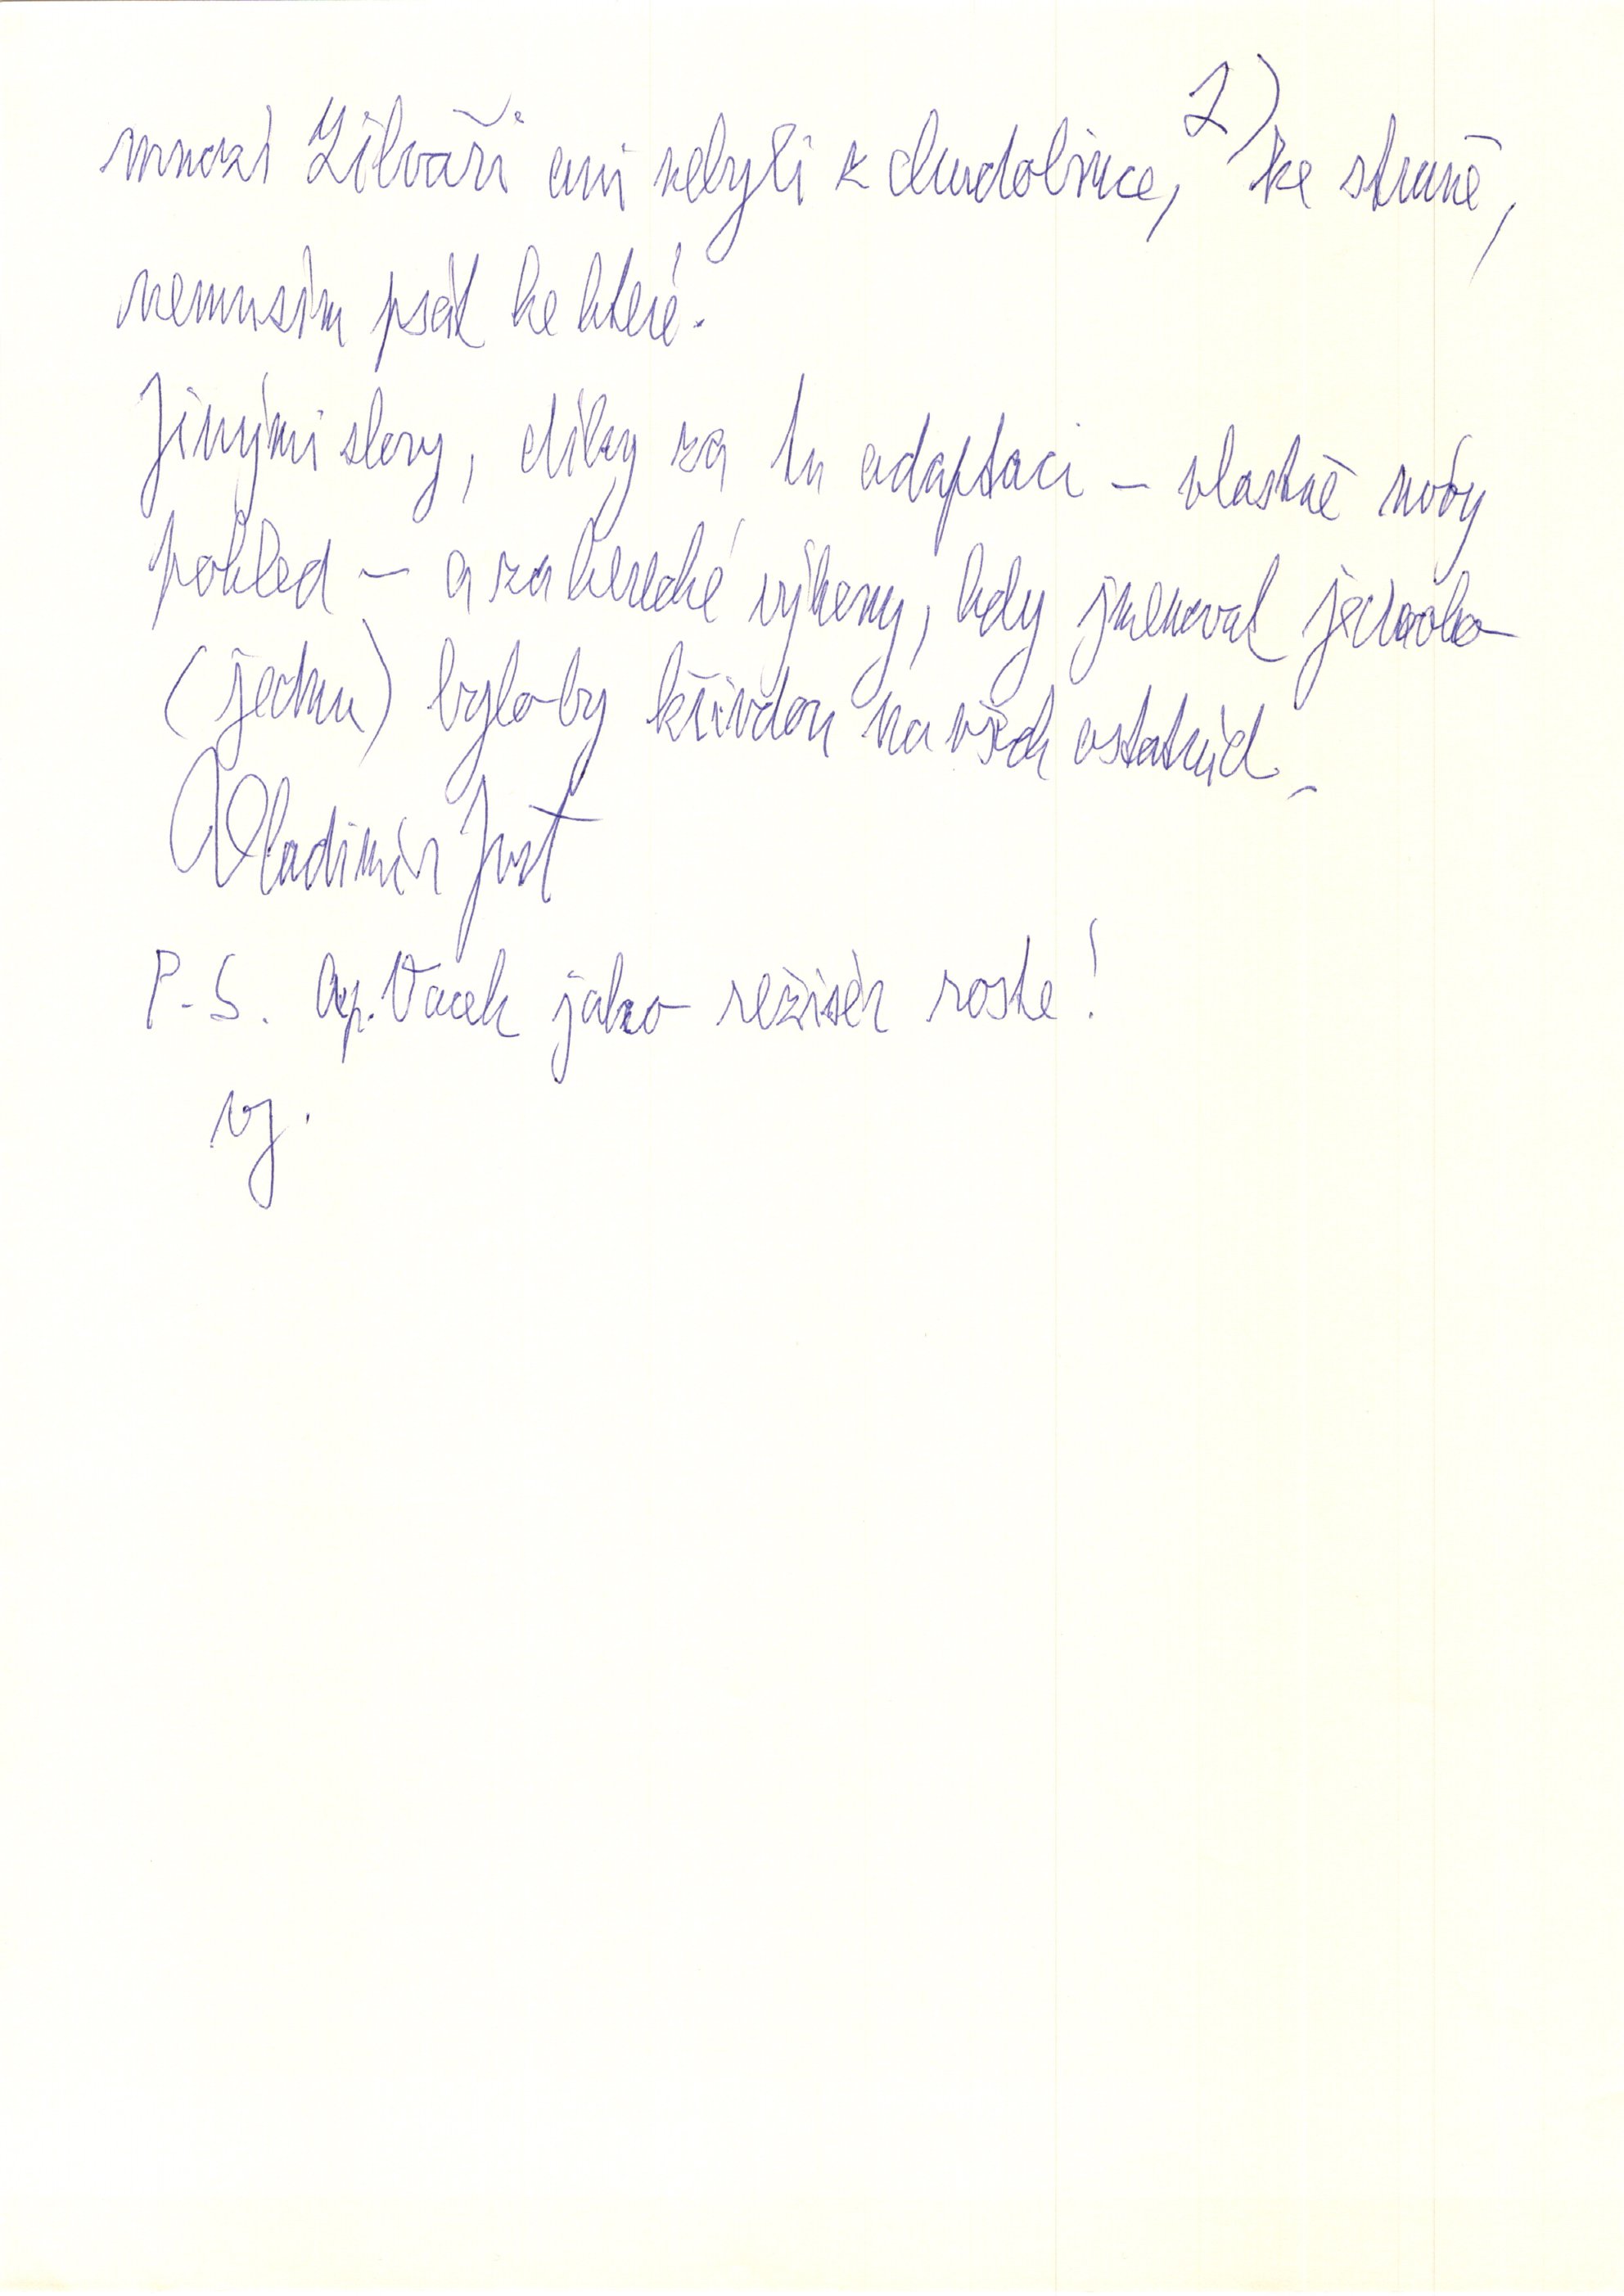 2)
mnozí Žilvaři ani nebyli z chudobince, ke straně,
nemusím psát ke které.
Jinými slovy, díky za tu adaptaci – vlastně nový
pohled – a za herecké výkony, kdy jmenovat jednoho
(jednu) bylo by křivdou na všech ostatních.
Vladimír Just
P.S. Vacek jako režisér roste!
vj.